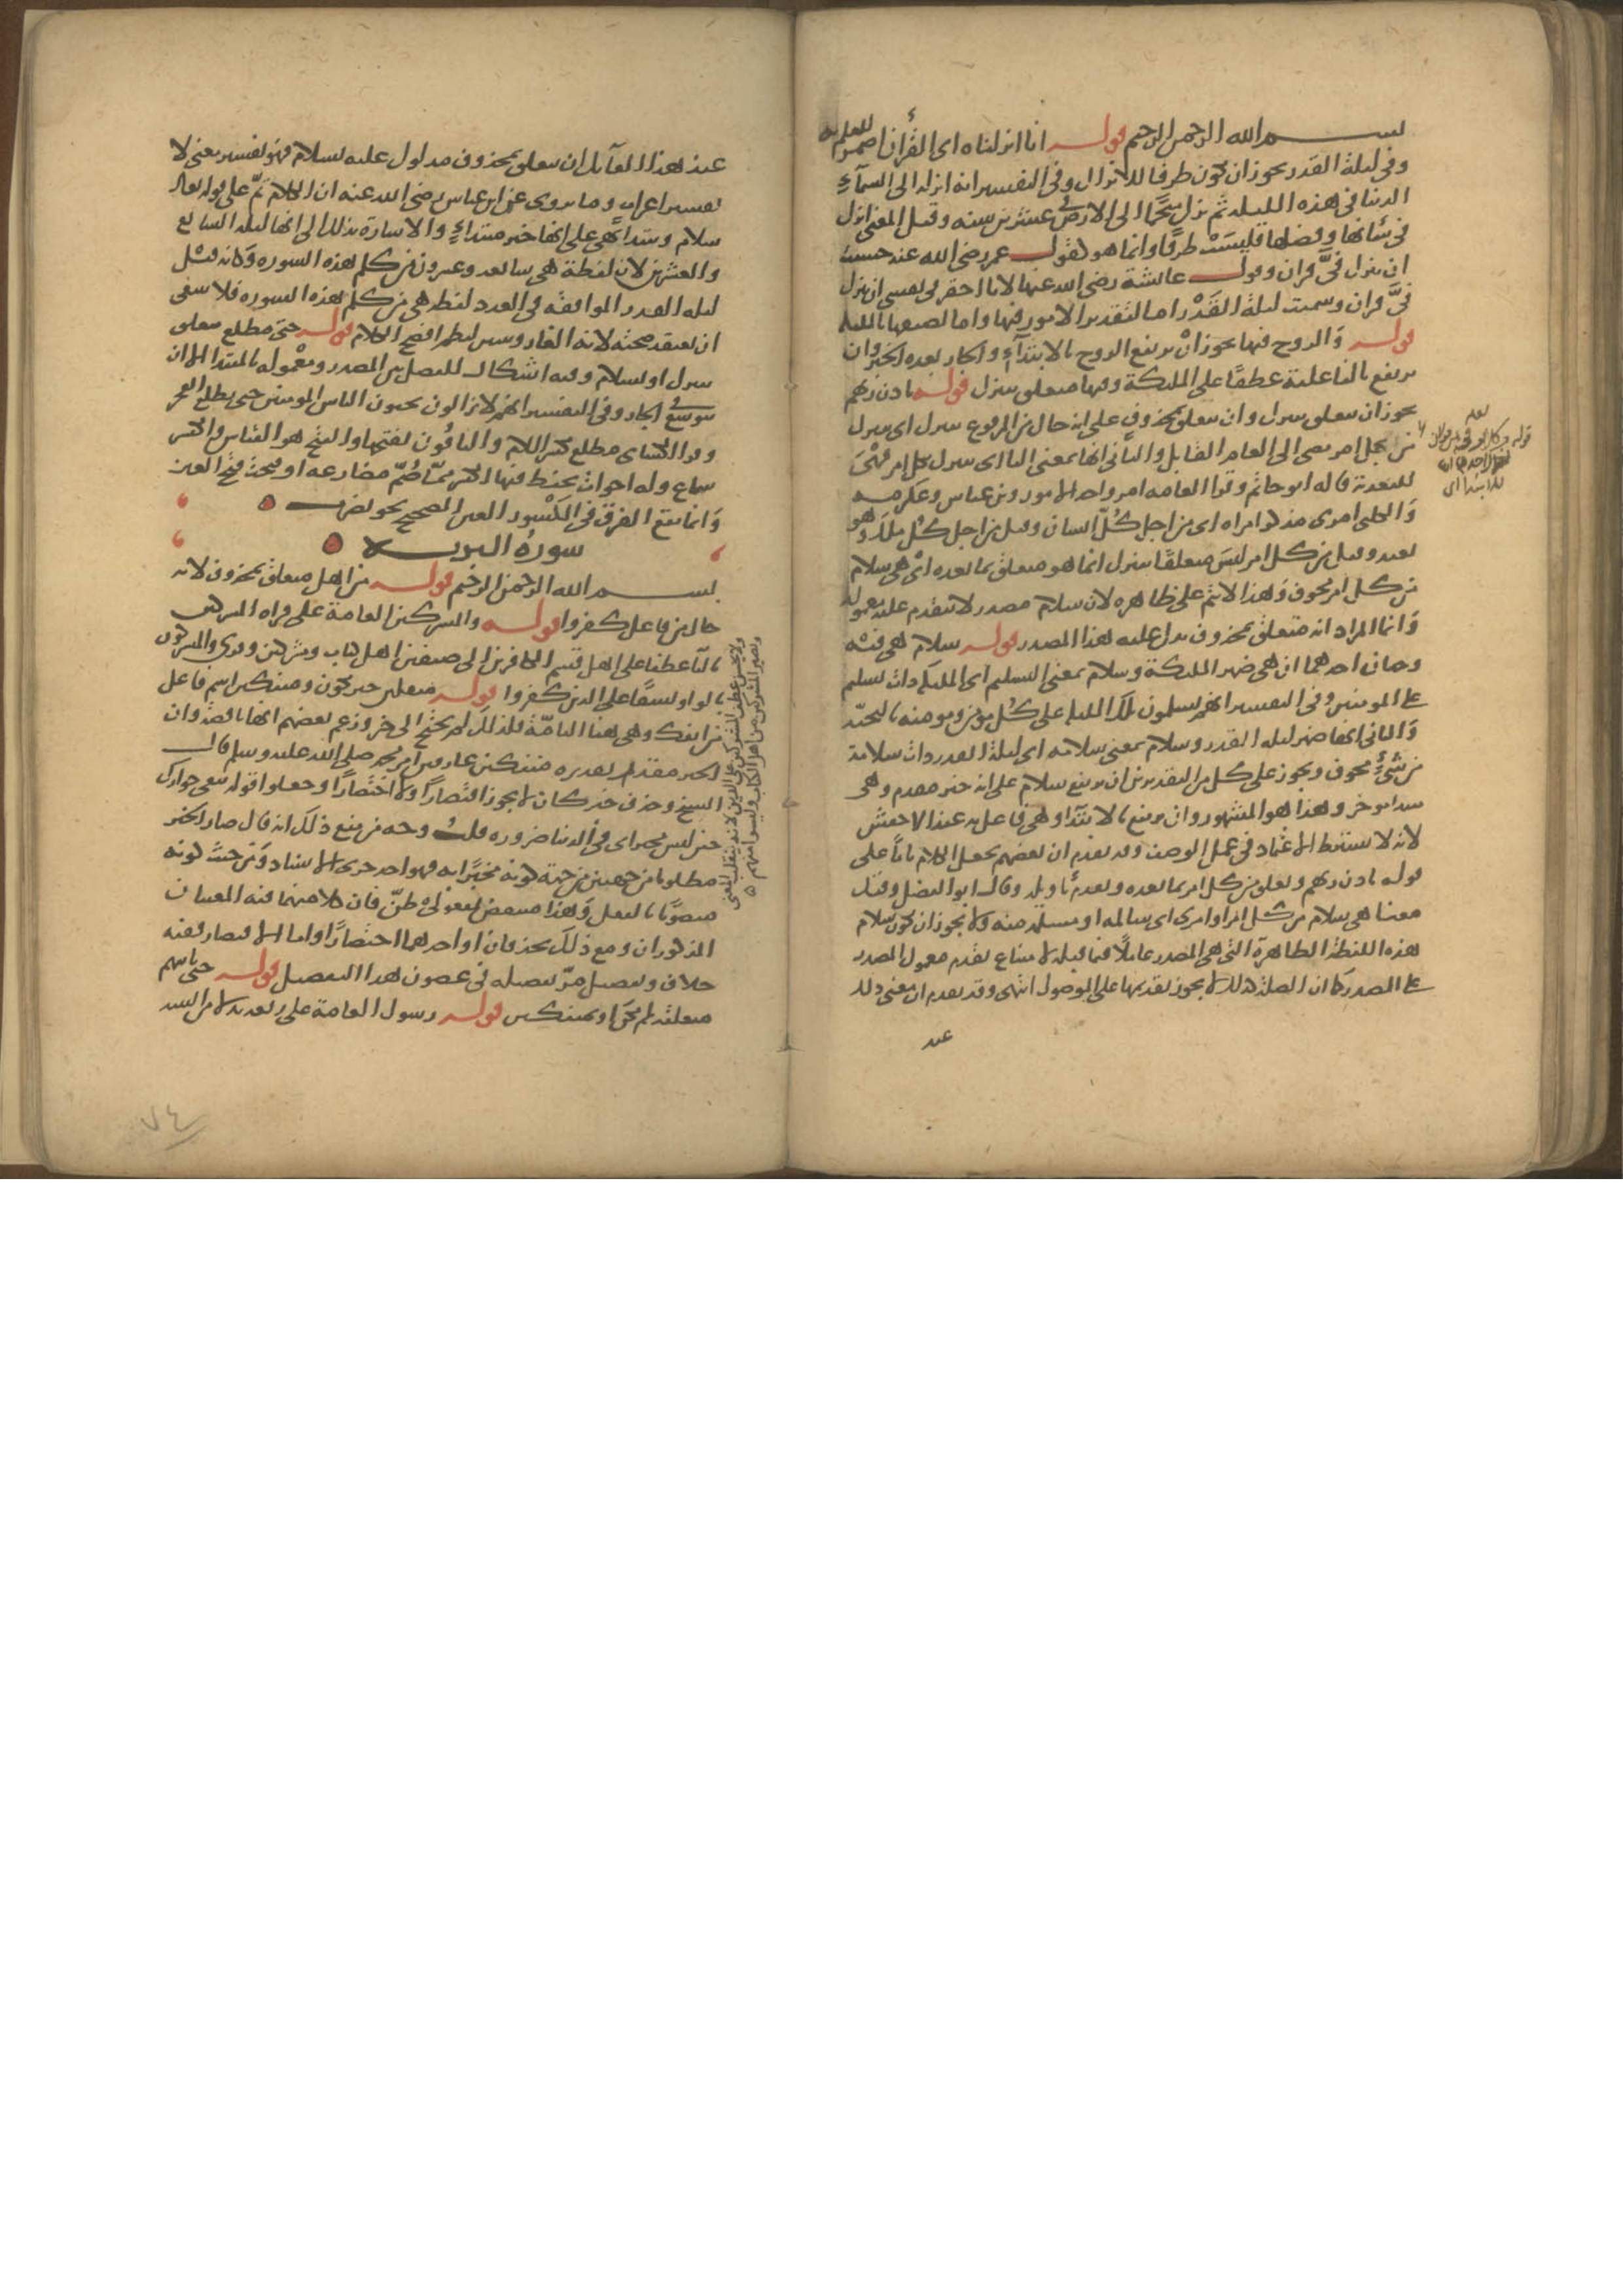 بسم الله الرحمن الرحيم قوله انا انزلناه اى القرآن اضمر للعلم به
وفى ليلة القدر يجوز ان يكون ظرفا للانزال وفى التفسير انه انزله الى السمآء
الدنيا فى هذه الليلة ثم نزل منجما الى الارض فى عشرين سنة وقيل المعنى انزل
فى شانها وفضلها فليست ظرفا وانما هو كقول عمر رضى الله عنه خشيت
ان ينزل فىّ قران وقول عائشة رضى الله عنها لانا احقر فى نفسى ان ينزل
فىّ قران وسميت ليلة القدر اما لتقدير الامور فيها واما لضيقها بالملائكة
قوله والروح فيها يجوز ان يرتفع الروح بالابتدآء والجار بعده الخبر وان
يرتفع بالفاعلية عطفا على الملئكة وفيها متعلق بتنزل قوله باذن ربهم
يجوز ان يتعلق بتنزل وان يتعلق بمحذوف على انه حال من المرفوع بتنزل اى يتنزل
من اجل امر يقضى الى العام القابل والثانى انها بمعنى البا اى تتنزل بكل امر فهى
للتعدية قاله ابو حاتم وقرا العامة امر واحد الامور وابن عباس وعكرمة
والكلبى امرى مذكر امراه اى من اجل كل انسان وقيل من اجل كل ملك وهو
بعيد وقيل من كل امر ليس متعلقا بتنزل انما هو متعلق بما بعده اى هى سلام
من كل امر مخوف وهذا لا يتم على ظاهره لان سلام مصدر لا يتقدم عليه معموله
وانما المراد انه متعلق بمحذوف يدل عليه هذا المصدر قوله سلام هى فيه
وجهان احدهما ان هى ضمير الملئكة وسلام بمعنى التسليم اى الملئكة ذات تسليم
على المومنين وفى التفسير انهم يسلمون تلك الليلة على كل مؤمن ومومنة بالتحية
والثانى انها ضمير ليلة القدر وسلام بمعنى سلامة اى ليلة القدر ذات سلامة
من شىء مخوف ويجوز على كل من التقديرين ان يرتفع سلام على انه خبر مقدم وهى
مبتدا موخر وهذا هو المشهور وان يرتفع بالابتدا وهى فاعل به عند الاخفش
لانه لا يشترط الاعتماد فى عمل الوصف وقد تقدم ان بعضهم يجعل الكلام تاما على
قوله باذن ربهم ويعلق من كل امر بما بعده وتقدم تاويله وقال ابو الفضل وقيل
معناه هى سلام من كل امر او امرى اى سالمة او مسلمة منه ولا يجوز ان يكون سلام
هذه اللفظة الظاهرة التى هى المصدر عاملا فيما قبله لامتناع تقدم معمول المصدر
على المصدر كما ان الصلة كذلك لا يجوز تقديمها على الموصول انتهى وقد تقدم ان معنى ذلك
عند
عند هذا القآئل ان يتعلق بمحذوف مدلول عليه بسلام فهو تفسير معنى لا
تفسير اعراب وما يروى عن ابن عباس رضى الله عنه ان الكلام تمّ على قوله تعالى
سلام ويبتدا بهى على انها خبر مبتداء والاشارة بذلك الى انها ليلة السابع
والعشرين لان لفظة هى سابعة وعشرون من كلم هذه السورة وكانه قيل
ليلة القدر الموافقة فى العدد لفظ هى من كلم هذه السورة فلا ينبغى
ان يعتقد صحته لانه الغاز وتبتير لنظم افصح الكلام قوله حتى مطلع متعلق
بتنزل او بسلام وفيه اشكال للفصل بين المصدر ومعموله بالمبتدا الا ان
يتوسع فى الجار وفى التفسير انهم لا يزالون يحيون الناس المومنين حتى يطلع الفجر
وقرا الكسائى مطلع بكسر اللام والباقون بفتحها والفتح هو القياس والكسر
سماع وله اخوات يحفظ فيها الكسر ممّا ضُمّ مضارعه او فتحت فتح العين
وانما يقع الفرق فى المكسور العين الصحيح نحو يضرب
سورة البرية
بسم الله الرحمن الرحيم قوله من اهل متعلق بمحذوف لانه
حال من فاعل كفروا قوله والمشركين العامة على قراة المشركين
باليا عطفا على اهل قسم الكافرين الى صنفين اهل كتاب ومشركين وقرى والمشركون
بالواو نسقا على الذين كفروا قوله منفكين خبر يكون ومنفكين اسم فاعل
من انفك وهى هنا التامّة فلذلك لم يحتج الى خبر وزعم بعضهم انها ناقصة وان
الخبر مقدر تقديره منفكين عارفين امر محمد صلى الله عليه وسلم قال
الشيخ وحذف خبر كان لا يجوز اقتصارا ولا اختصارا وجعلوا قوله يبغى جوارك
حين ليس مجير اى فى الدنيا ضرورة قلت وجه من منع ذلك انه قال صار الخبر
مطلوبا من جهتين من جهة كونه مخبرا به فهو احد جزءى الاسناد ومن حيث كونه
منصوبا بالفعل وهذا منتقض بمفعولى ظنّ فان كلا منهما فيه المعنيان
المذكوران ومع ذلك يحذفان او احدهما اختصارا واما الاقتصار ففيه
خلاف وتفصيل مرّ تفصيله فى غضون هذا التفصيل قوله حتى تاتيهم
متعلقة بلم يكن او بمنفكين قوله رسول العامة على رفعه بدلا من البينة
ولا يحسن عطف المشركين على الذين لانه ينقلب المعنى
ويصير المشركين من اهل الكتاب وليسوا منهم
٧٤